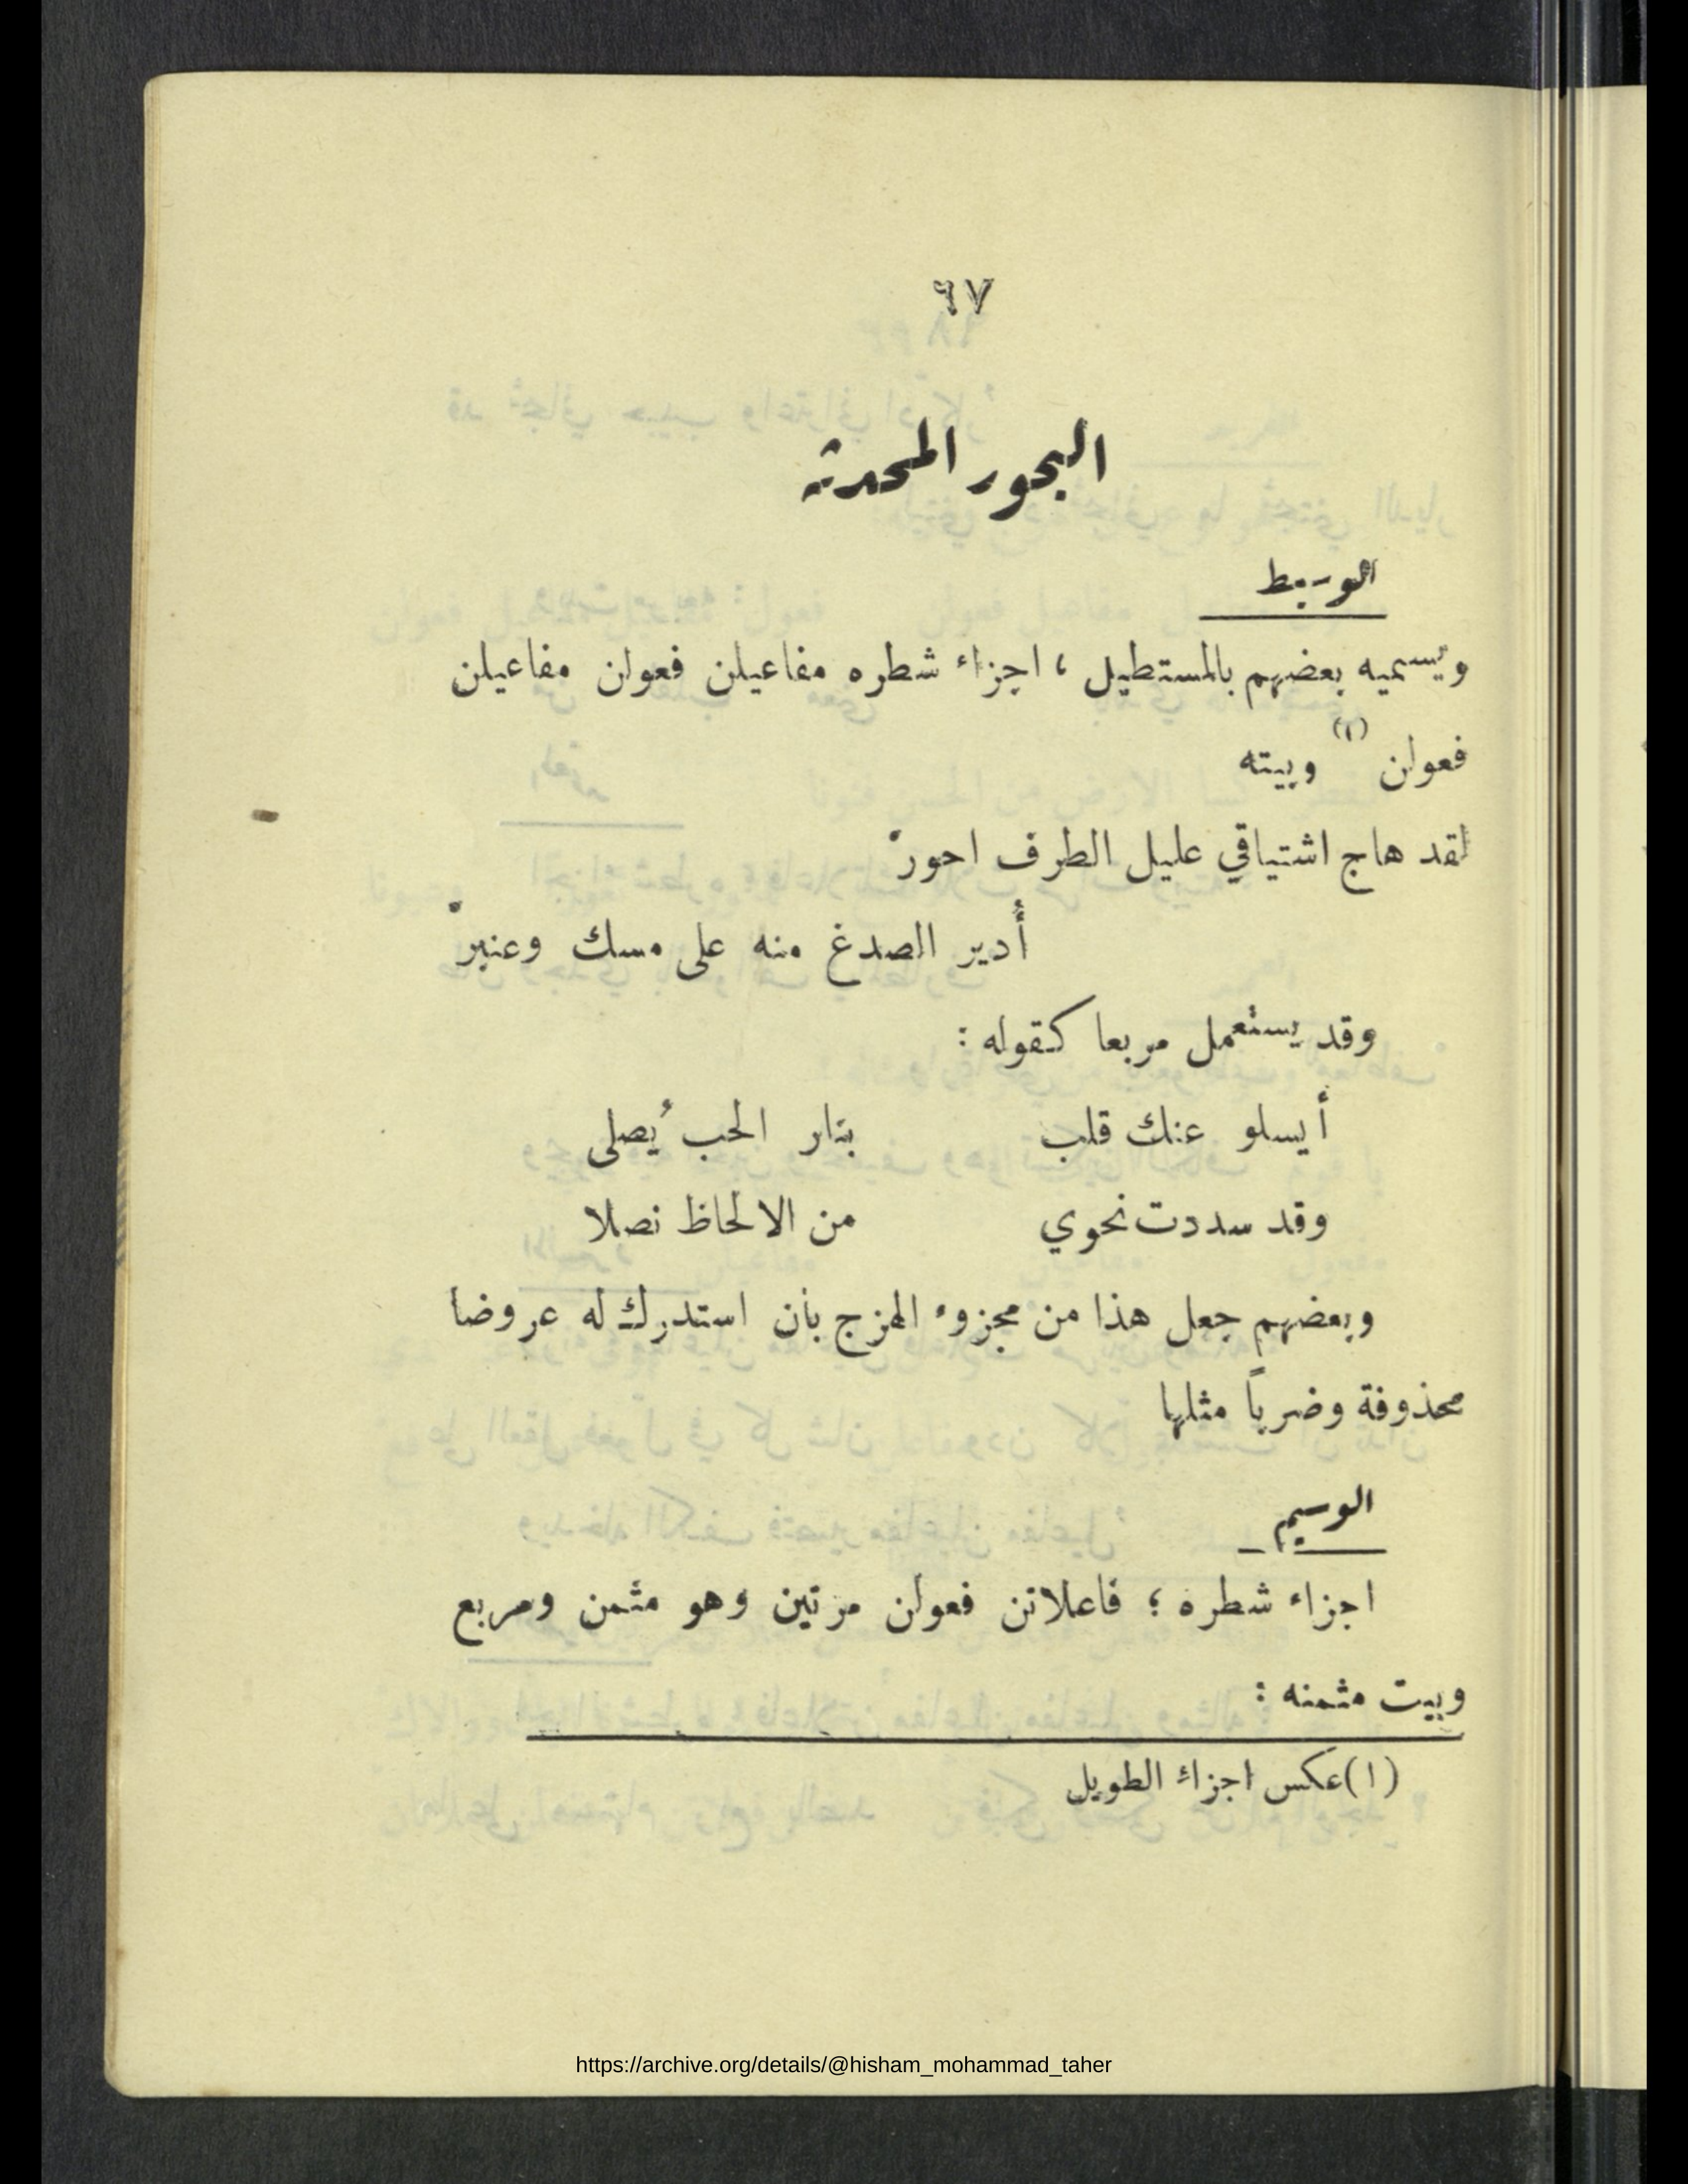 ٦٧
البحور المحدثة
الوسيط
ويسميه بعضهم بالمستطيل ، اجزاء شطره مفاعيلن فعولن مفاعيلن
فعولن (١) وبيته
لقد هاج اشتياقي عليل الطرف احورْ
أُدير الصدغ منه على مسك وعنبرْ
وقد يستعمل مربعا كقوله :
أيسلو عنك قلب بنار الحب يُصلى
وقد سددت نحوي من الالحاظ نصلا
وبعضهم جعل هذا من مجزوء الهزج بأن استدرك له عروضا
محذوفة وضرباً مثلها
الوسيم
اجزاء شطره ؛ فاعلاتن فعولن مرتين وهو مثمن ومربع
وبيت مثمنه :
(١) عكس اجزاء الطويل
https://archive.org/details/@hisham_mohammad_taher